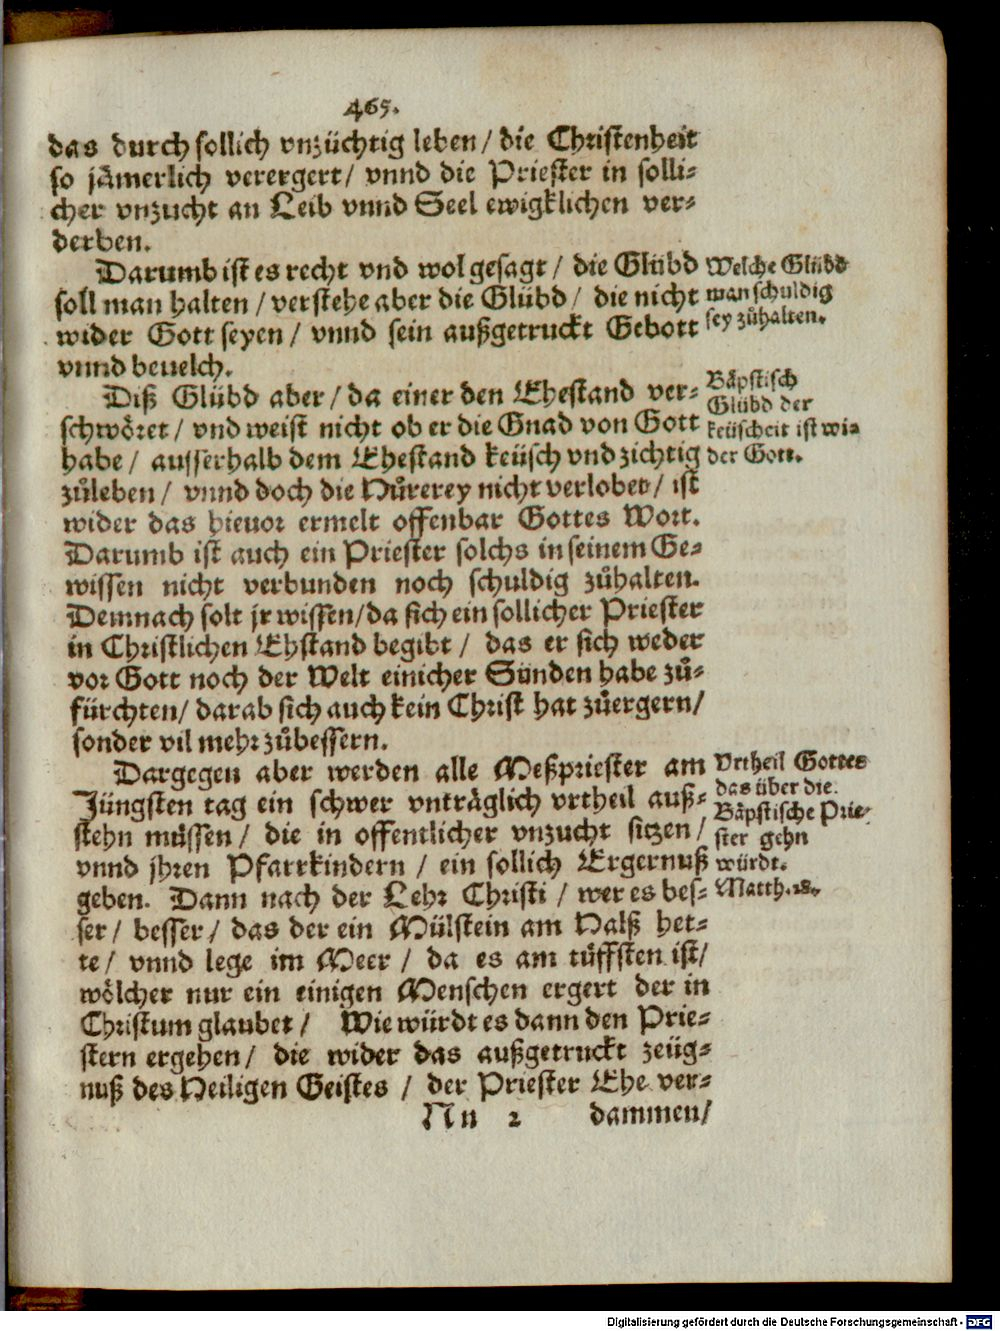 465.
das durch sollich vnzüchtig leben / die Christenheit
so jämerlich verergert / vnnd die Priester in solli-
cher vnzucht an Leib vnnd Seel ewigklichen ver-
derben.
Darumb ist es recht vnd wol gesagt / die Glübd
soll man halten / verstehe aber die Glübd / die nicht
wider Gott seyen / vnnd sein außgetruckt Gebott
vnnd beuelch.
Welche Glübd
man schuldig
sey zůhalten.
Diß Glübd aber / da einer den Ehestand ver-
schwöret / vnd weist nicht ob er die Gnad von Gott
habe / ausserhalb dem Ehestand keüsch vnd zichtig
zůleben / vnnd doch die Hůrerey nicht verlobet / ist
wider das hieuor ermelt offenbar Gottes Wort.
Darumb ist auch ein Priester solchs in seinem Ge-
wissen nicht verbunden noch schuldig zůhalten.
Demnach solt jr wissen / da sich ein sollicher Priester
in Christlichen Ehstand begibt / das er sich weder
vor Gott noch der Welt einicher Sünden habe zů-
fürchten / darab sich auch kein Christ hat zůergern /
sonder vil mehr zůbessern.
Bäpstisch
Glübd der
keüscheit ist wi-
der Gott.
Dargegen aber werden alle Meßpriester am
Jüngsten tag ein schwer vnträglich vrtheil auß-
stehn müssen / die in offentlicher vnzucht sitzen /
vnnd jhren Pfarrkindern / ein sollich Ergernuß
geben. Dann nach der Lehr Christi / wer es bes-
ser / besser / das der ein Mülstein am Halß het-
te / vnnd lege im Meer / da es am tüffsten ist /
wölcher nur ein einigen Menschen ergert der in
Christum glaubet / Wie würdt es dann den Prie-
stern ergehen / die wider das außgetruckt zeüg-
nuß des Heiligen Geistes / der Priester Ehe ver-
Vrtheil Gottes
das über die
Bäpstische Prie-
ster gehn
würdt.
Matth. 18.
Nn 2 dammen /
Digitalisierung gefördert durch die Deutsche Forschungsgemeinschaft - DFG